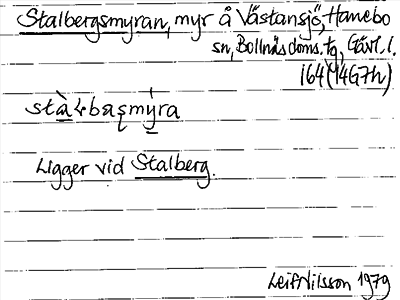 Stalbergsmyran, myr å Västansjö, Hanebo
sn, Bollnäs doms. tg, Gävl. l.
164 (14G7h)
Ligger vid Stalberg.
Leif Nilsson 1979